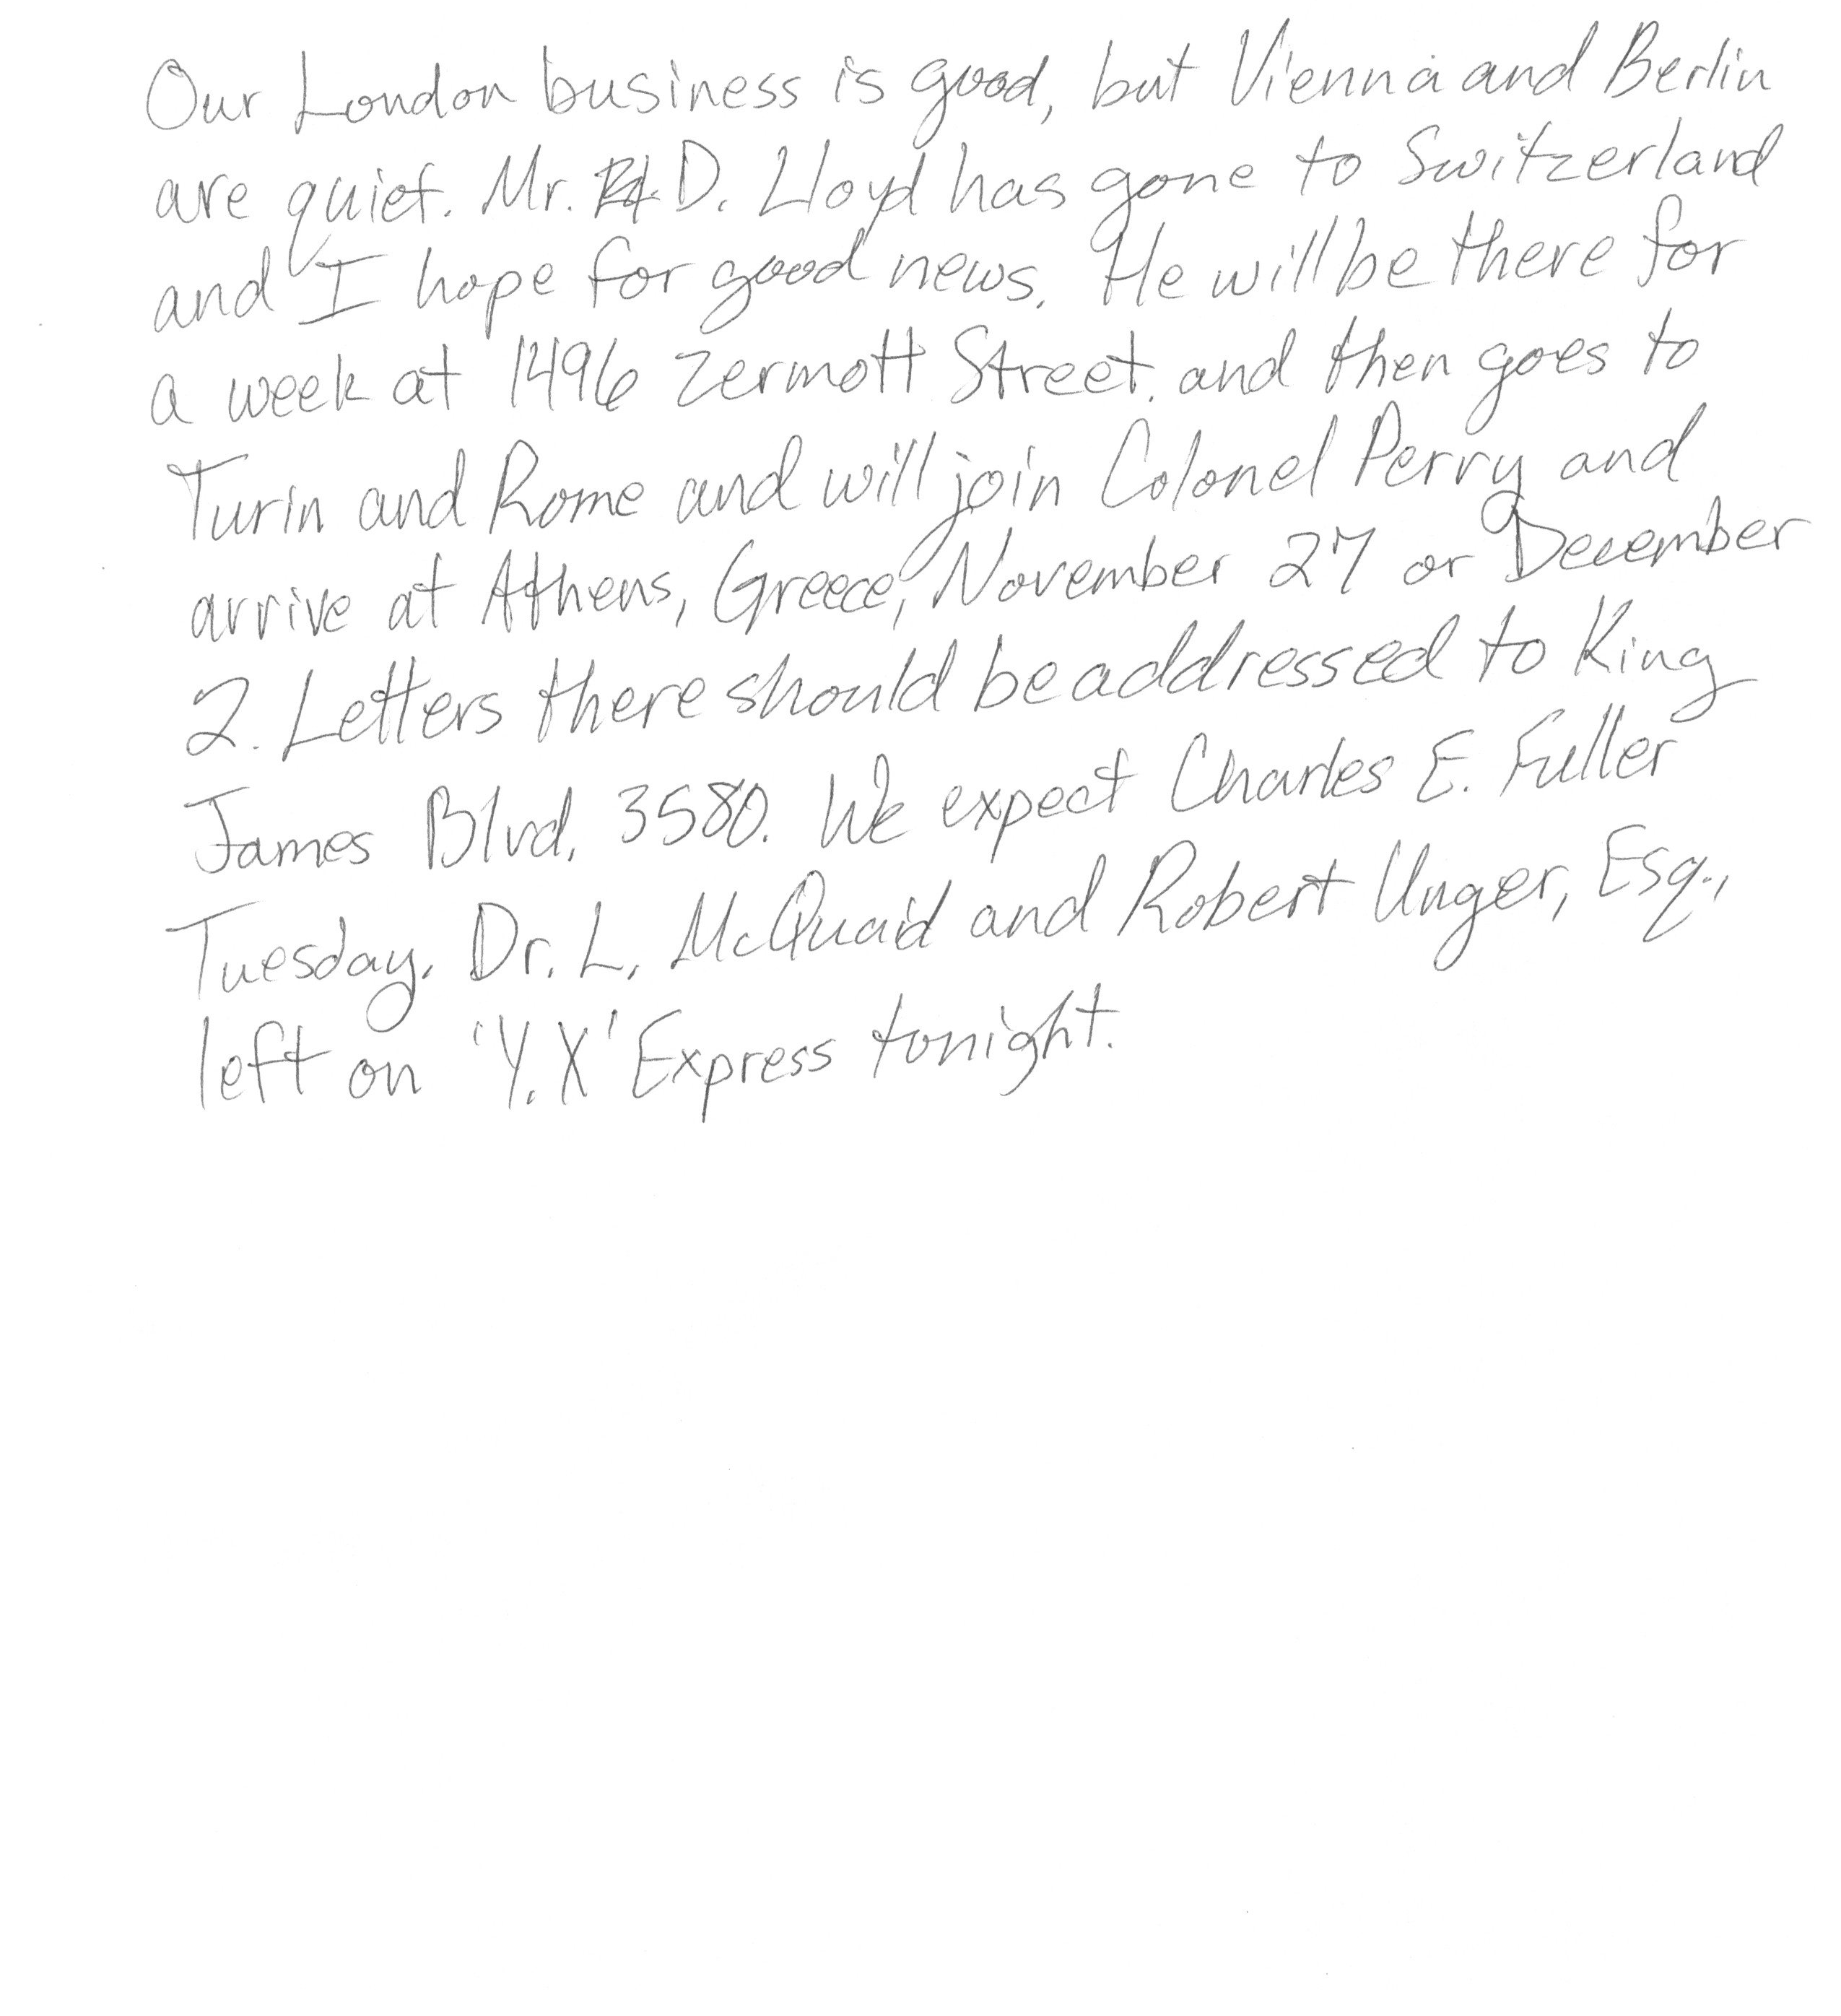 Our London business is good, but Vienna and Berlin
are quiet. Mr. D. Lloyd has gone to Switzerland
and I hope for good news. He will be there for
a week at 1496 Zermott Street. and then goes to
Turin and Rome and will join Colonel Perry and
arrive at Athens, Greece, November 27 or December
2. Letters there should be addressed to King
James Blvd. 3580. We expect Charles E. Fuller
Tuesday. Dr. L. McQuaid and Robert Unger, Esq.,
left on 'Y.X' Express tonight.